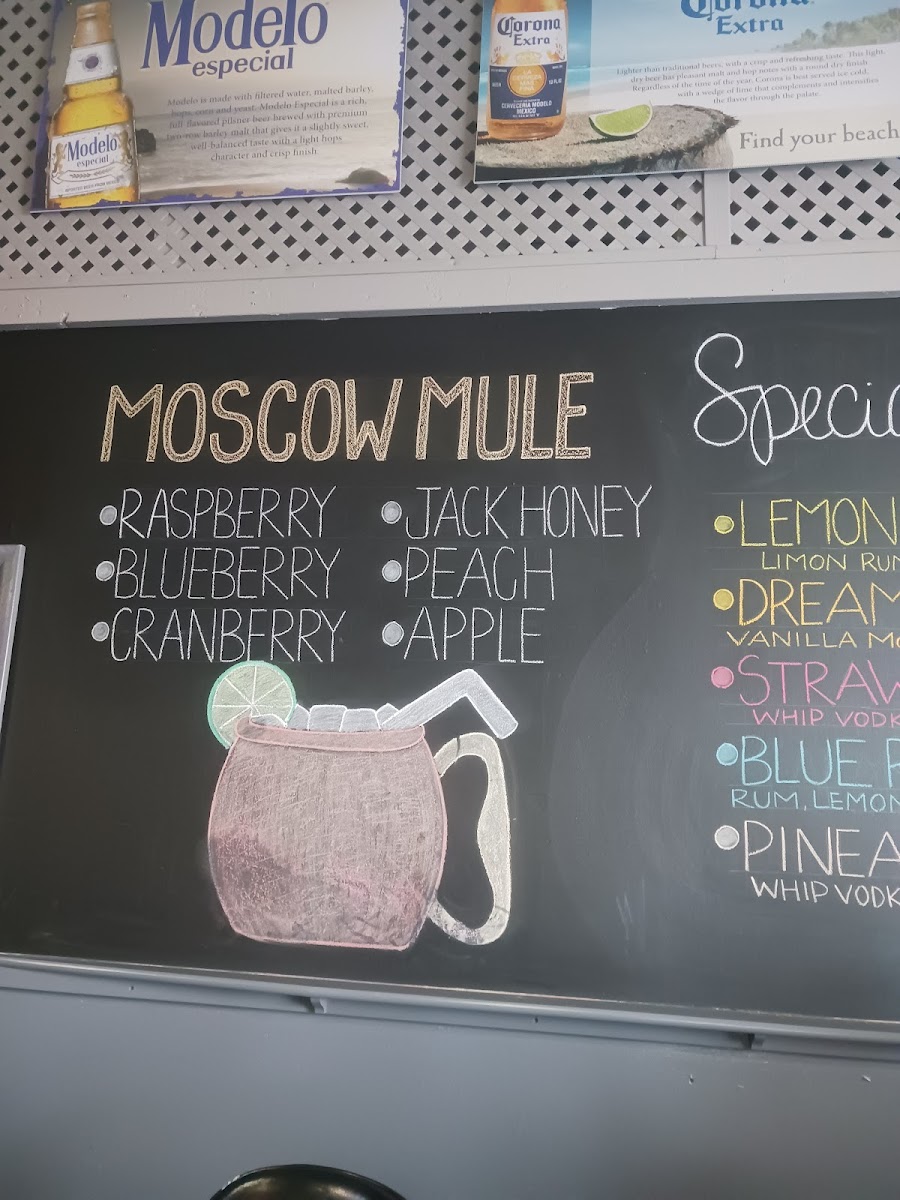 Modelo
especial
Modelo is made with filtered water, malted barley,
hops, corn and yeast. Modelo Especial is a rich,
full-flavored pilsner beer brewed with premium
two-row barley malt that gives it a slightly sweet,
well-balanced taste with a light hops
character and crisp finish.
Modelo
especial
Corona
Extra
Corona
Extra
LA CERVEZA MAS FINA
CERVECERIA MODELO
MEXICO
Lighter than traditional beers, with a crisp and refreshing taste. This light,
dry beer has pleasant malt and hop notes with a round dry finish.
Regardless of the time of the year, Corona is best served ice cold,
with a wedge of lime that complements and intensifies
the flavor through the palate.
Find your beach
MOSCOW MULE
RASPBERRY
BLUEBERRY
CRANBERRY
JACK HONEY
PEACH
APPLE
Specia
LEMON
LIMON RUM
DREAM
VANILLA
STRAW
WHIP VODK
BLUE
RUM, LEMON
PINEA
WHIP VODK